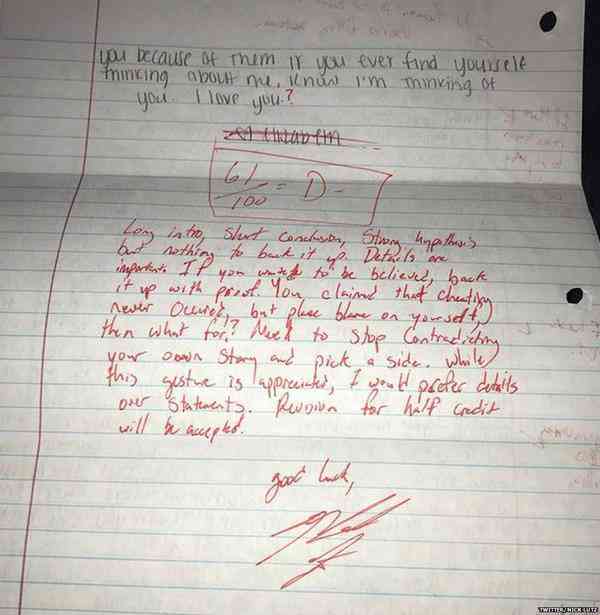 you because of them if you ever find yourself
thinking about me, know I'm thinking of
you. I love you.?
61/100 = D-
Long intro, Short Conclusion, Strong hypothesis
but nothing to back it up. Details are
important. If you want to be believed, back
it up with proof. You claimed that cheating
never Occured, but place blame on yourself,
then what for? Need to Stop Contradicting
your own Story and pick a side. While
this gesture is appreciated, I would prefer details
over Statements. Revision for half credit
will be accepted.
good luck,
TWITTER/NICK LUTZ